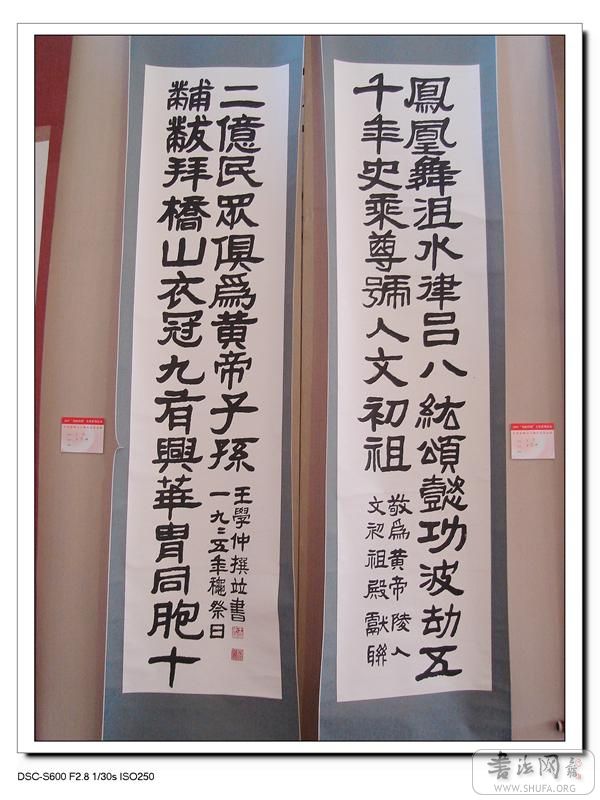 鳳凰舞沮水律呂八紘頌懿功波劫五
千年史乘尊號人文初祖
敬爲黄帝陵人
文初祖殿獻聯
黼黻拜橋山衣冠九有興華胄同胞十
二億民眾俱爲黄帝子孫
王學仲撰並書
一九〻五年穐祭日
DSC-S600 F2.8 1/30s ISO250
書法网
WWW.SHUFA.ORG